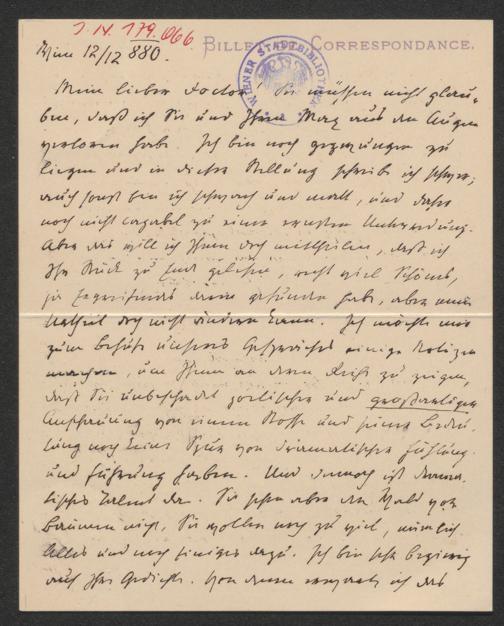 I. N. 179.066
BILLET CORRESPONDANCE.
WIENER STADTBIBLIOTHEK
Wien 12/12 880.
Mein lieber Doctor! Sie müssen nicht glau-
ben, daß ich Sie und Ihren aus den Augen
verloren habe. Ich bin noch gezwungen zu
liegen und in dieser Stellung schreibe ich schwer;
auch sonst bin ich schwach und matt, und daher
noch nicht capabel zu einer ernsten Unterredung.
Aber das will ich Ihnen doch mittheilen, daß ich
Ihr Stück zu Ende gelesen, recht viel Schönes,
ja Ergreifendes darin gefunden habe, aber mein
Urtheil doch nicht ändern kann. Ich möchte mir
zum Behufe unseres Gespräches einige Notizen
machen, um Ihnen an dem zu zeigen,
daß Sie unbeschadet poetischer und großartiger
Anschauung von einem Stoffe und seiner Bedeu-
tung noch keine Spur von dramatischer Fühlung
und Führung haben. Und dennoch ist drama-
tisches Talent da. Sie sehen aber den Wald vor
Bäumen nicht, Sie wollen noch zu viel, nämlich
Alles und noch Einiges dazu. Ich bin sehr begierig
auch Ihre Gedichte. Von denen erwarte ich das